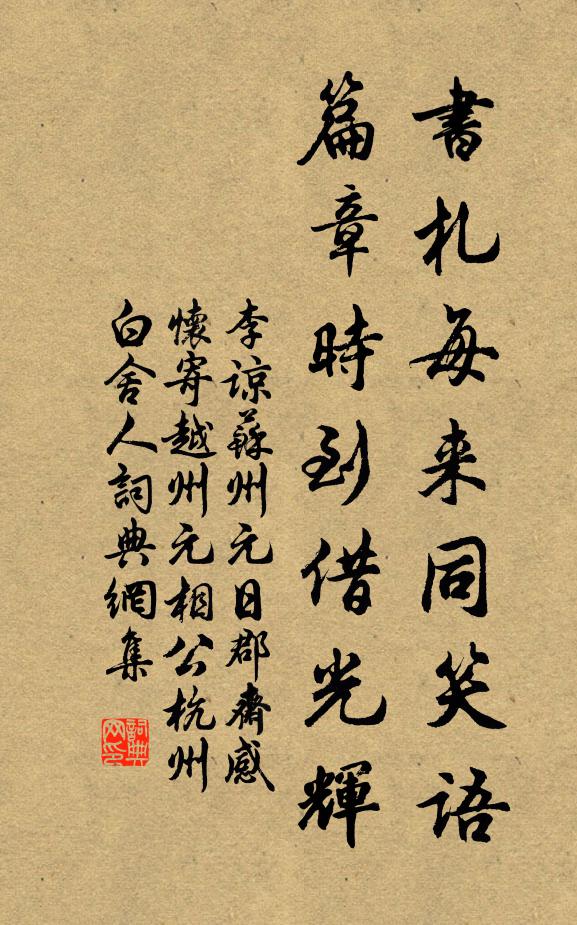 書札每来同笑語
篇章時到借光輝
李諒蘇州元日郡齋感
懷寄越州元相公杭州
白舍人詞典網集
詞典网印